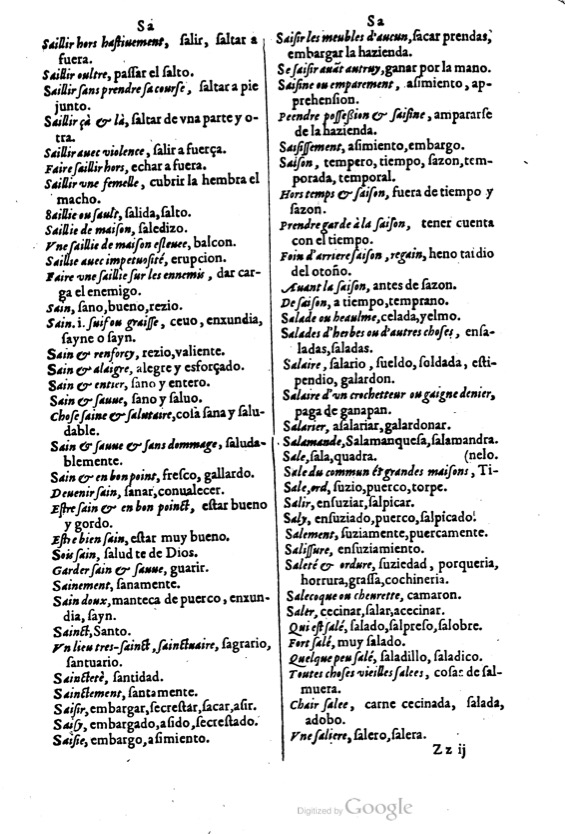 Sa
Saillir hors hastiuement, salir, saltar a
fuera.
Saillir oultre, passar el salto.
Saillir sans prendre sa course, saltar a pie
junto.
Saillir çà & là, saltar de vna parte y o-
tra.
Saillir auec violence, salir a fuerça.
Faire saillir hors, echar a fuera.
Saillir vne femelle, cubrir la hembra el
macho.
Saillie ou sault, salida, salto.
Saillie de maison, saledizo.
Vne saillie de maison esleuee, balcon.
Saillie auec impetuosité, erupcion.
Faire vne saillie sur les ennemis, dar car-
ga el enemigo.
Sain, sano, bueno, rezio.
Sain. i. suif ou graisse, ceuo, enxundia,
sayne o sayn.
Sain & renforcy, rezio, valiente.
Sain & alaigre, alegre y esforçado.
Sain & entier, sano y entero.
Sain & sauue, sano y saluo.
Chose saine & salutaire, cosa sana y salu-
dable.
Sain & sauue & sans dommage, saluda-
blemente.
Sain & en bon point, fresco, gallardo.
Deuenir sain, sanar, conualecer.
Estre sain & en bon poinct, estar bueno
y gordo.
Estre bien sain, estar muy bueno.
Sois sain, salud te de Dios.
Garder sain & sauue, guarir.
Sainement, sanamente.
Sain doux, manteca de puerco, enxun-
dia, sayn.
Sainct, Santo.
Vn lieu tres-sainct, sainctuaire, sagrario,
santuario.
Saincteté, santidad.
Sainctement, santamente.
Saisir, embargar, secrestar, sacar, asir.
Saisy, embargado, asido, secrestado.
Saisie, embargo, asimiento.
Sa
Saisir les meubles d'aucun, sacar prendas,
embargar la hazienda.
Se saisir auāt autruy, ganar por la mano.
Saisine ou emparement, asimiento, ap-
prehension.
Peendre possession & saisine, ampararse
de la hazienda.
Saisissement, asimiento, embargo.
Saison, tempero, tiempo, sazon, tem-
porada, temporal.
Hors temps & saison, fuera de tiempo y
sazon.
Prendre garde à la saison, tener cuenta
con el tiempo.
Foin d'arriere saison, regain, heno tardio
del otoño.
Auant la saison, antes de sazon.
De saison, a tiempo, temprano.
Salade ou heaulme, celada, yelmo.
Salades d'herbes ou d'autres choses, ensa-
ladas, saladas.
Salaire, salario, sueldo, soldada, esti-
pendio, galardon.
Salaire d'vn crochetteur ou gaigne denier,
paga de ganapan.
Salarier, asalariar, galardonar.
Salamande, Salamanquesa, salamandra.
Sale, sala, quadra. (nelo.
Sale du commun ét grandes maisons, Ti-
Sale, ord, suzio, puerco, torpe.
Salir, ensuziar, salpicar.
Saly, ensuziado, puerco, salpicado.
Salement, suziamente, puercamente.
Salissure, ensuziamiento.
Saleté & ordure, suziedad, porqueria,
horrura, grassa, cochineria.
Salecoque ou cheurette, camaron.
Saler, cecinar, salar, acecinar.
Qui est salé, salado, salpreso, salobre.
Fort salé, muy salado.
Quelque peu salé, saladillo, saladico.
Toutes choses vieilles salees, cosas de sal-
muera.
Chair salee, carne cecinada, salada,
adobo.
Vne saliere, salero, salera.
Z z ij
Digitized by Google